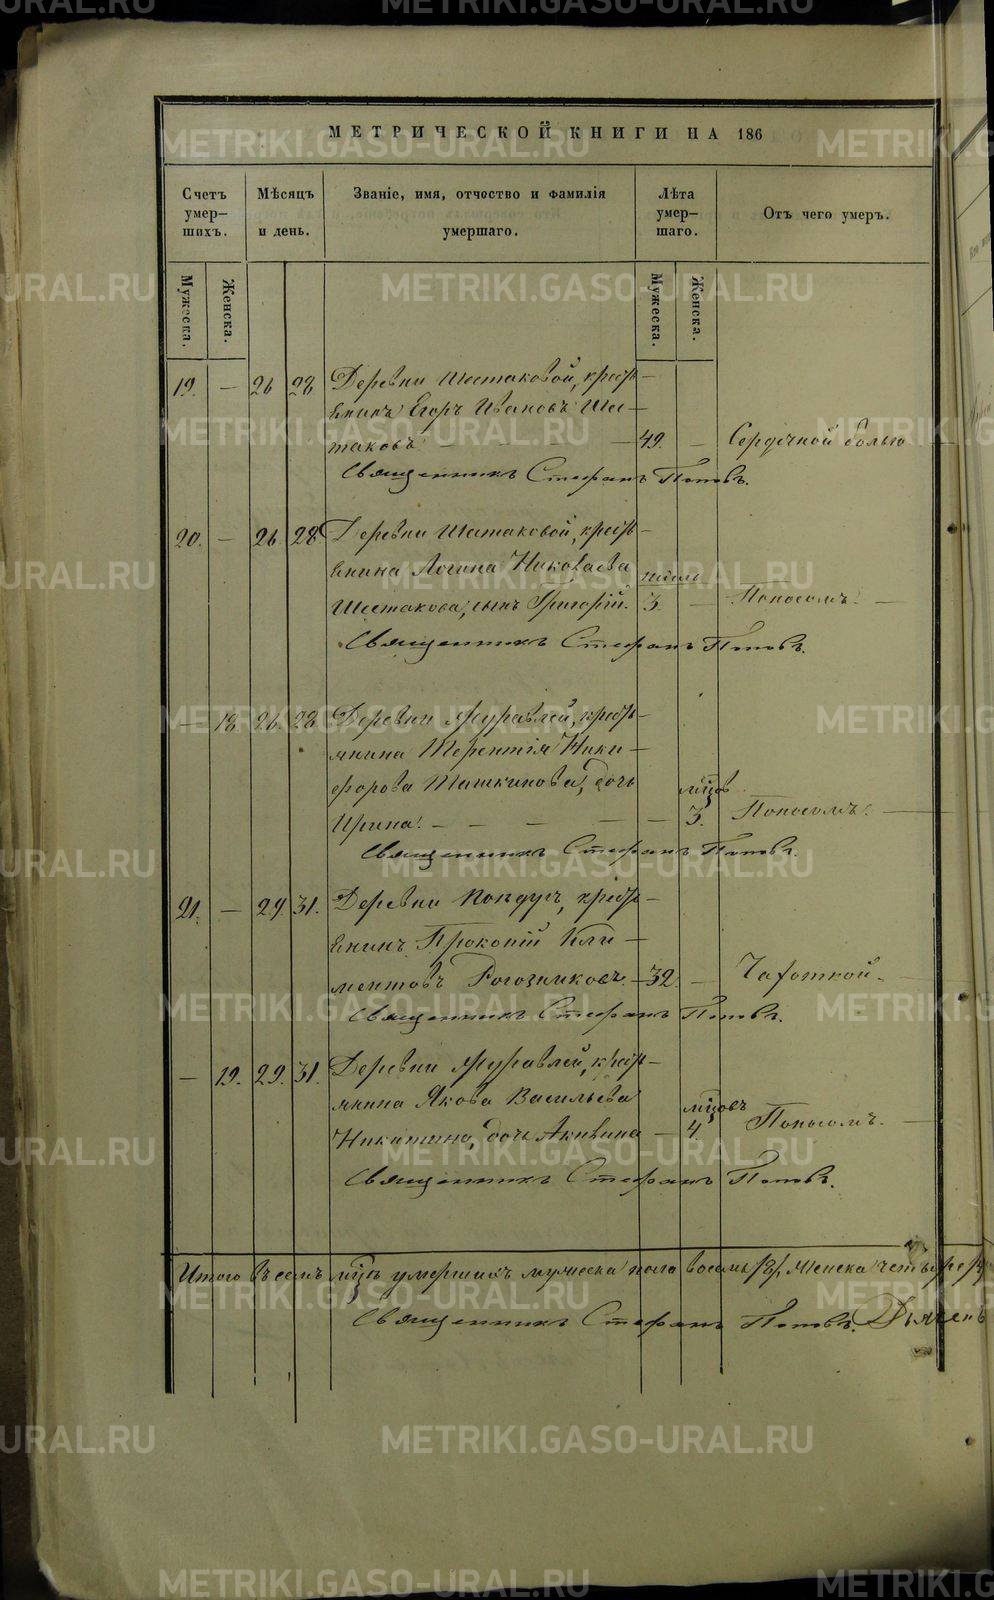 МЕТРИЧЕСКОЙ КНИГИ НА 186
Счетъ умер— шихъ.
Мѣсяцъ и день.
Званіе, имя, отчество и фамилія умершаго.
Лѣта умер— шаго.
Отъ чего умеръ.
Мужеска.
Женска.
Мужеска.
Женска.
19. — 26 28 Деревни Шестаковой, кресть—
янинъ Егоръ Ивановъ Шес—
таковъ — — — — 49. — Сердечной болью
Священникъ Стефанъ Поповъ.
20. — 26. 28 Деревни Шестаковой, кресть—
янина Логина Николаева
Шестакова, сынъ Григорій. 3. — Поносомъ. —
Священникъ Стефанъ Поповъ.
— 18 26. 28 Деревни Журавлей, кресть—
янина Терентія Ники—
форова Ташкинова, дочь мѣсцовъ
Ирина. — — — — — 3. Поносомъ. —
Священникъ Стефанъ Поповъ.
21. — 29. 31. Деревни Кондуръ, кресть—
янинъ Прокопій Кли—
ментовъ Рогозниковъ. — 32. — Чахоткой. —
Священникъ Стефанъ Поповъ.
— 19. 29. 31. Деревни Журавлей, кресть—
янина Якова Васильева мѣсцовъ
Никитина, дочь Акилина — 4. Поносомъ. —
Священникъ Стефанъ Поповъ.
Итого въ семъ мѣсцѣ умершихъ мужеска пола восемь /8/, женска четыре /4
Священникъ Стефанъ Поповъ.
METRIKI.GASO-URAL.RU